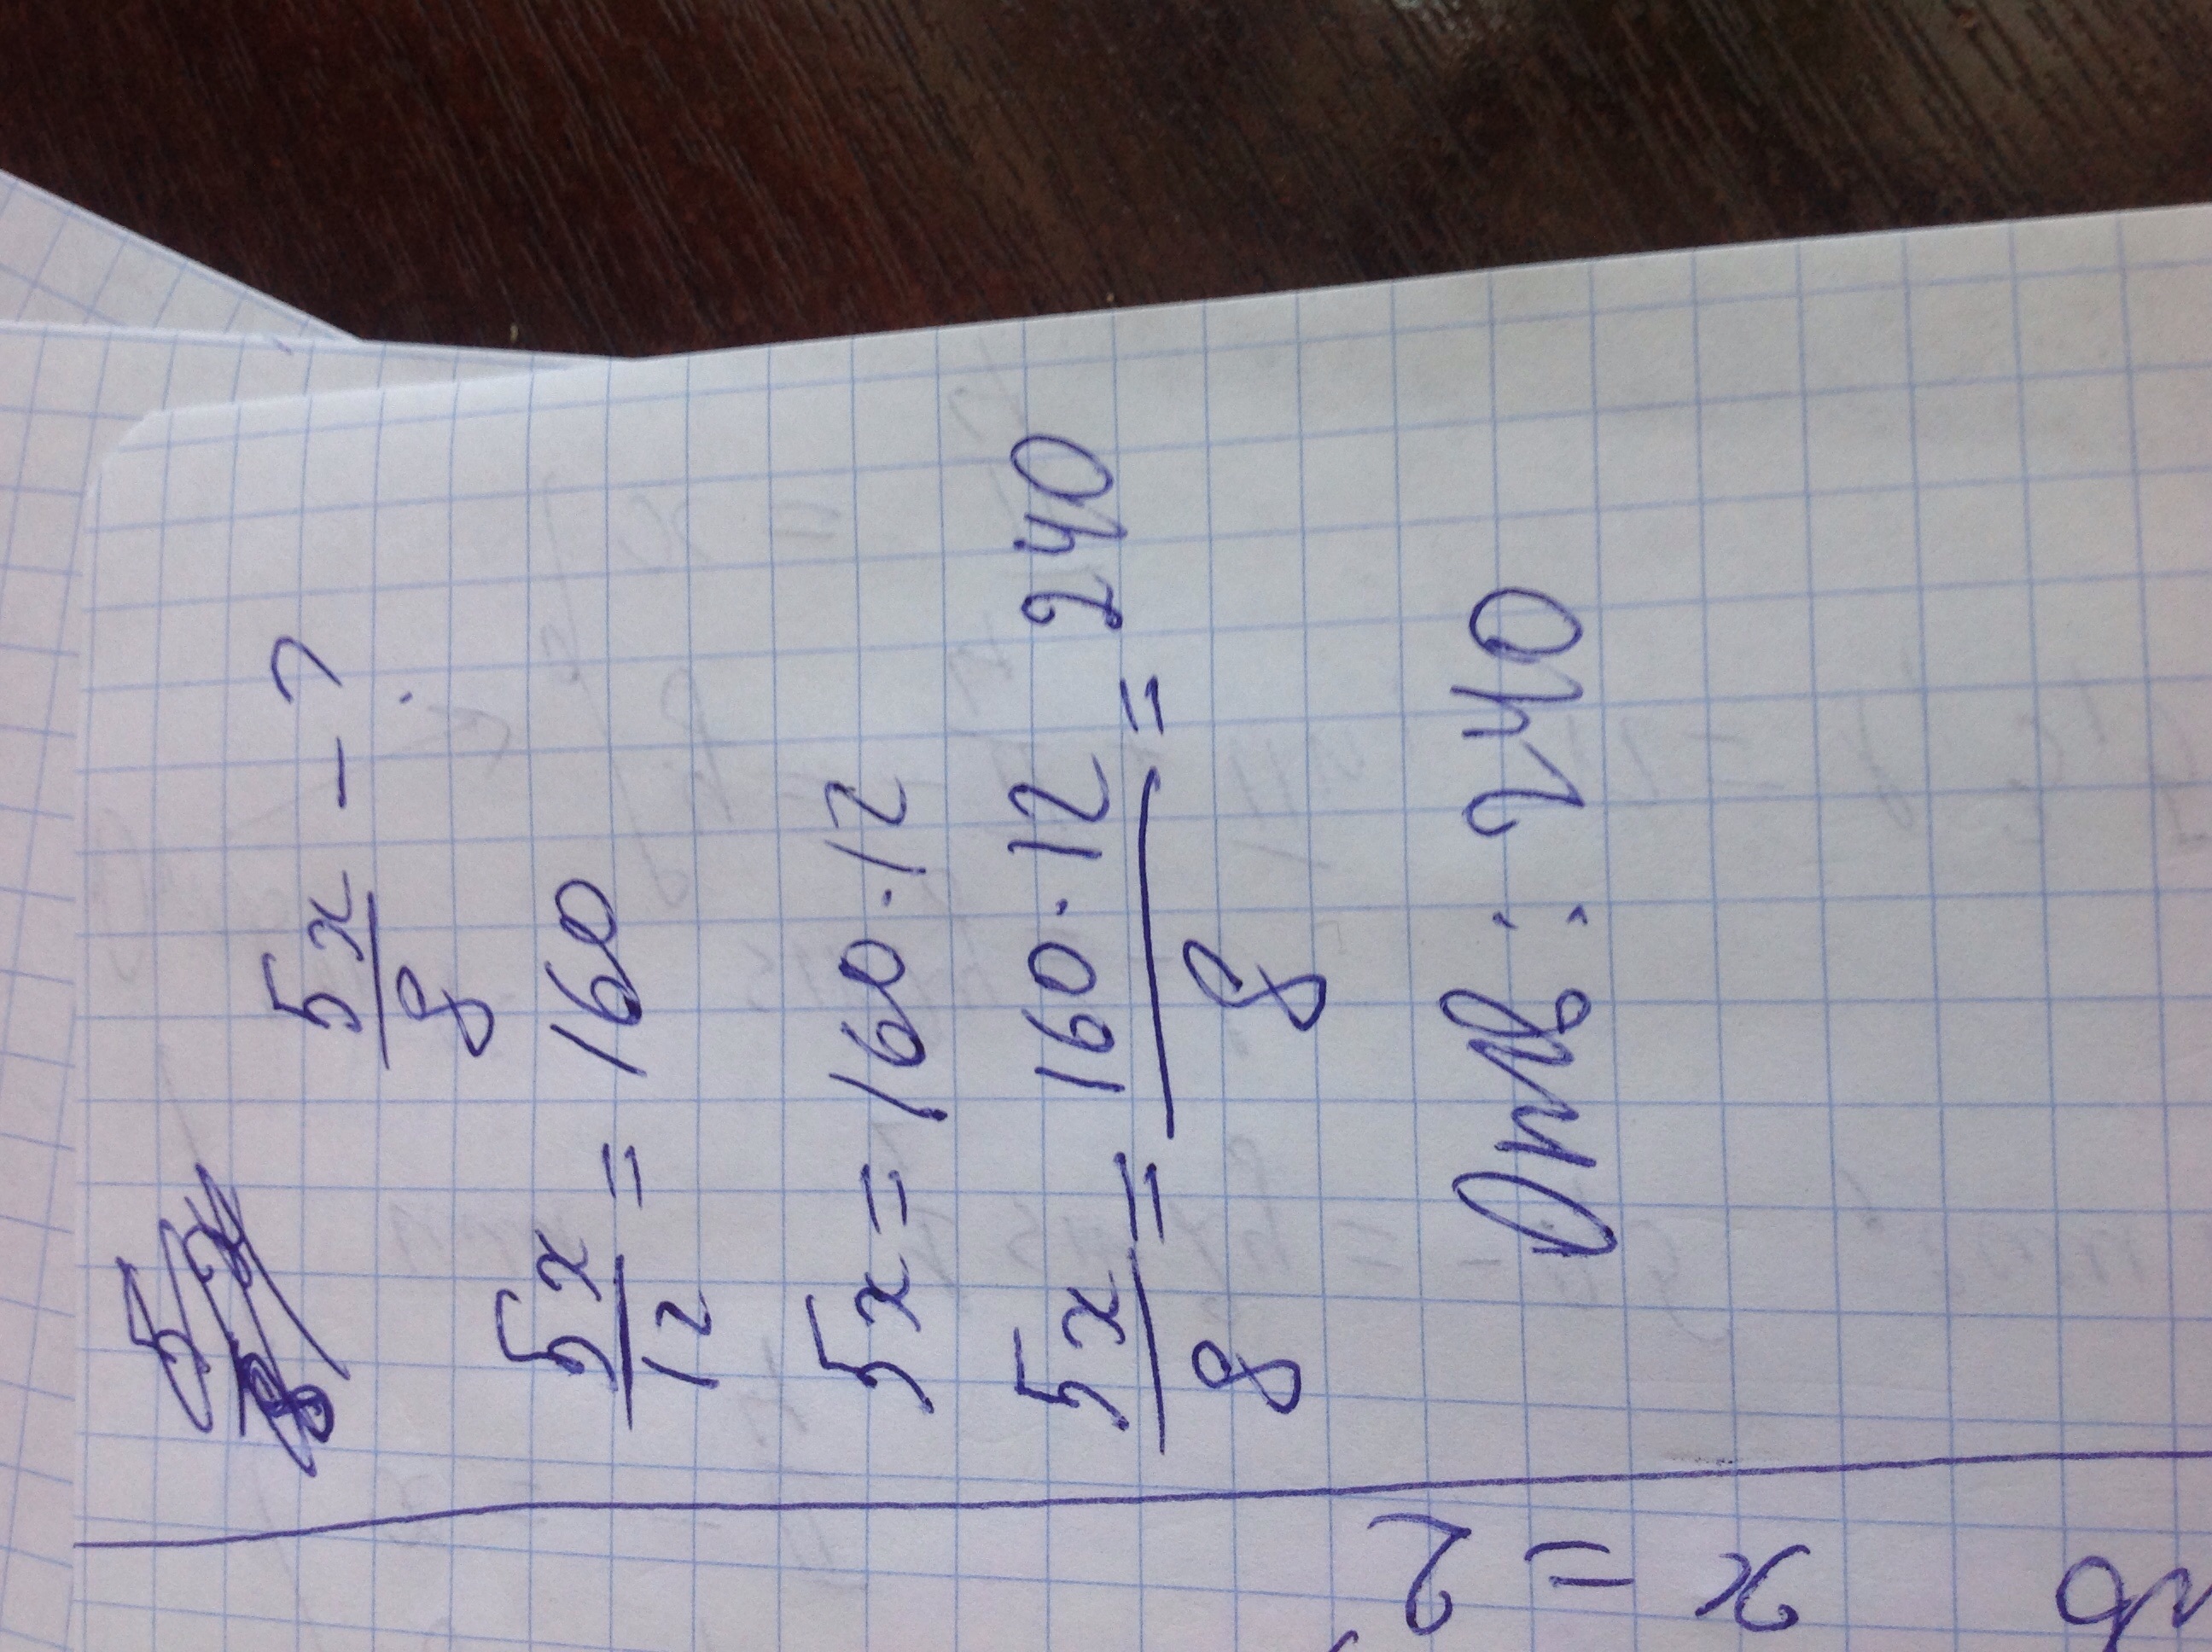 5x/8 - ?
5x/12 = 160
5x = 160 · 12
5x/8 = 160 · 12/8 = 240
Отв: 240
x = 2